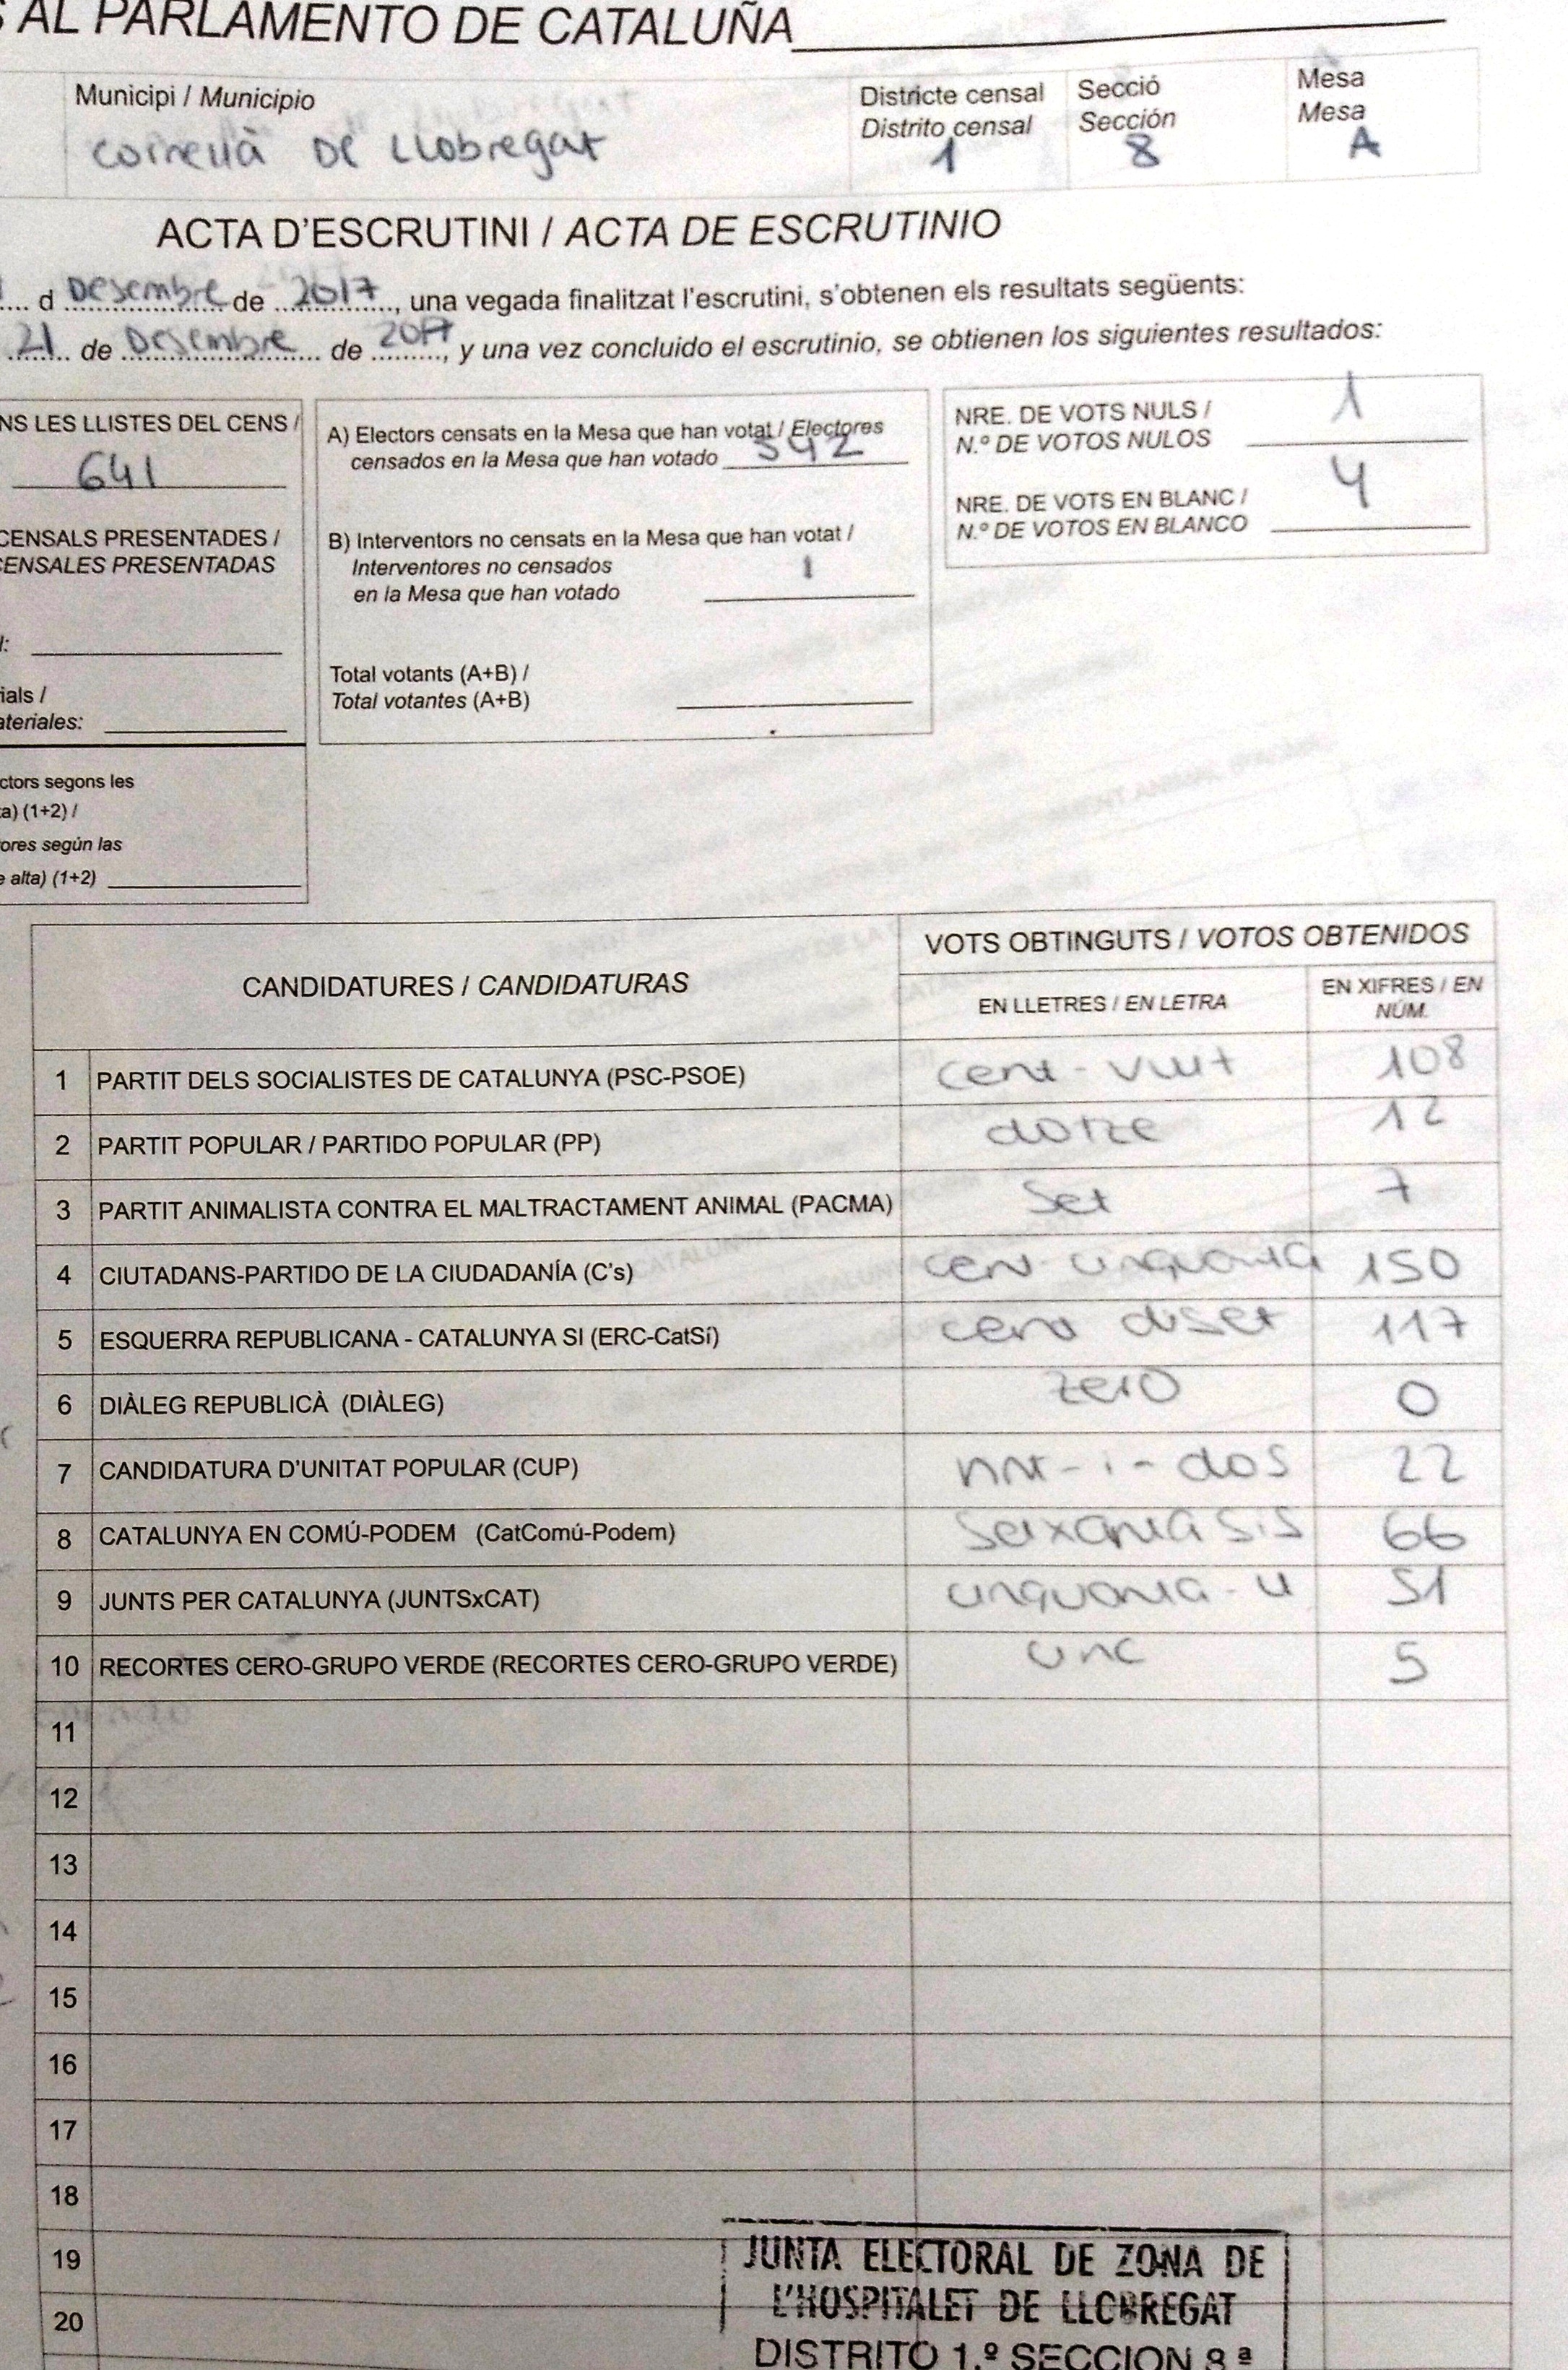 S AL PARLAMENTO DE CATALUÑA
Municipi / Municipio
Cornellà De Llobregat
Districte censal
Distrito censal
1
Secció
Sección
8
Mesa
Mesa
A
ACTA D'ESCRUTINI / ACTA DE ESCRUTINIO
d Desembre de 2017, una vegada finalitzat l'escrutini, s'obtenen els resultats següents:
21 de Desembre de 2017, y una vez concluido el escrutinio, se obtienen los siguientes resultados:
NS LES LLISTES DEL CENS /
641
CENSALS PRESENTADES /
CENSALES PRESENTADAS
l:
ials /
ateriales:
ctors segons les
ta) (1+2) /
ores según las
e alta) (1+2)
A) Electors censats en la Mesa que han votat / Electores
censados en la Mesa que han votado 542
B) Interventors no censats en la Mesa que han votat /
Interventores no censados
en la Mesa que han votado 1
Total votants (A+B) /
Total votantes (A+B)
NRE. DE VOTS NULS /
N.º DE VOTOS NULOS 1
NRE. DE VOTS EN BLANC /
N.º DE VOTOS EN BLANCO 4
CANDIDATURES / CANDIDATURAS
VOTS OBTINGUTS / VOTOS OBTENIDOS
EN LLETRES / EN LETRA
EN XIFRES / EN
NÚM.
1 PARTIT DELS SOCIALISTES DE CATALUNYA (PSC-PSOE) cent-vuit 108
2 PARTIT POPULAR / PARTIDO POPULAR (PP) dotze 12
3 PARTIT ANIMALISTA CONTRA EL MALTRACTAMENT ANIMAL (PACMA) Set 7
4 CIUTADANS-PARTIDO DE LA CIUDADANÍA (C's) cent cinquanta 150
5 ESQUERRA REPUBLICANA - CATALUNYA SI (ERC-CatSí) cent diset 117
6 DIÀLEG REPUBLICÀ (DIÀLEG) zero 0
7 CANDIDATURA D'UNITAT POPULAR (CUP) vint-i-dos 22
8 CATALUNYA EN COMÚ-PODEM (CatComú-Podem) Seixanta sis 66
9 JUNTS PER CATALUNYA (JUNTSxCAT) cinquanta-u 51
10 RECORTES CERO-GRUPO VERDE (RECORTES CERO-GRUPO VERDE) cinc 5
11
12
13
14
15
16
17
18
19
20
JUNTA ELECTORAL DE ZONA DE
L'HOSPITALET DE LLOBREGAT
DISTRITO 1.º SECCION 8 ª